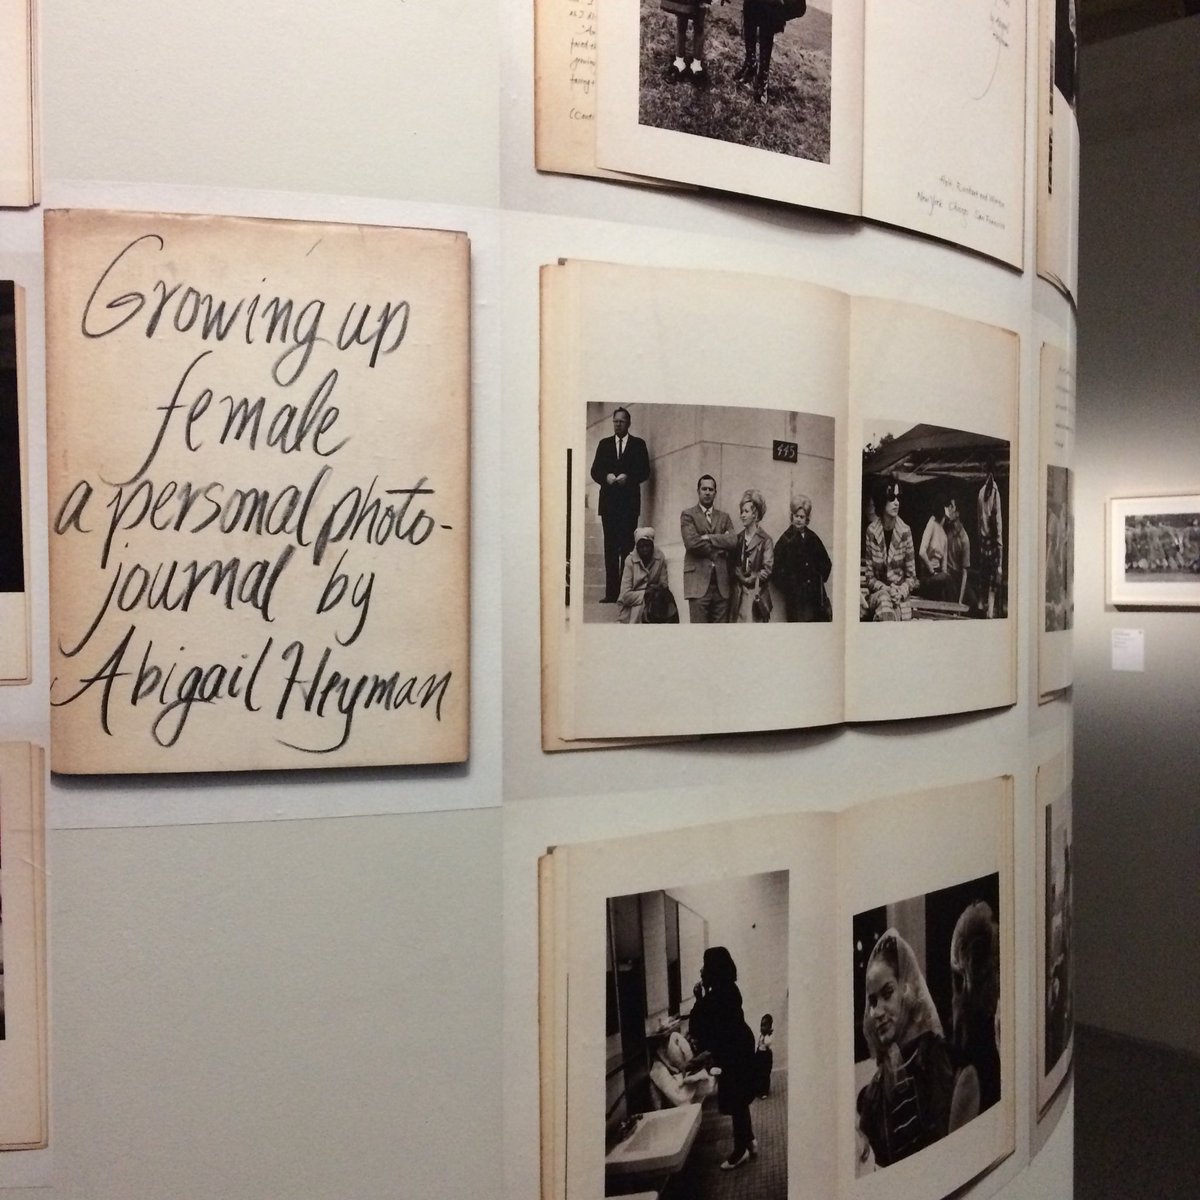 Growing up
female
a personal photo-
journal by
Abigail Heyman
Holt, Rinehart and Winston
New York Chicago San Francisco
445